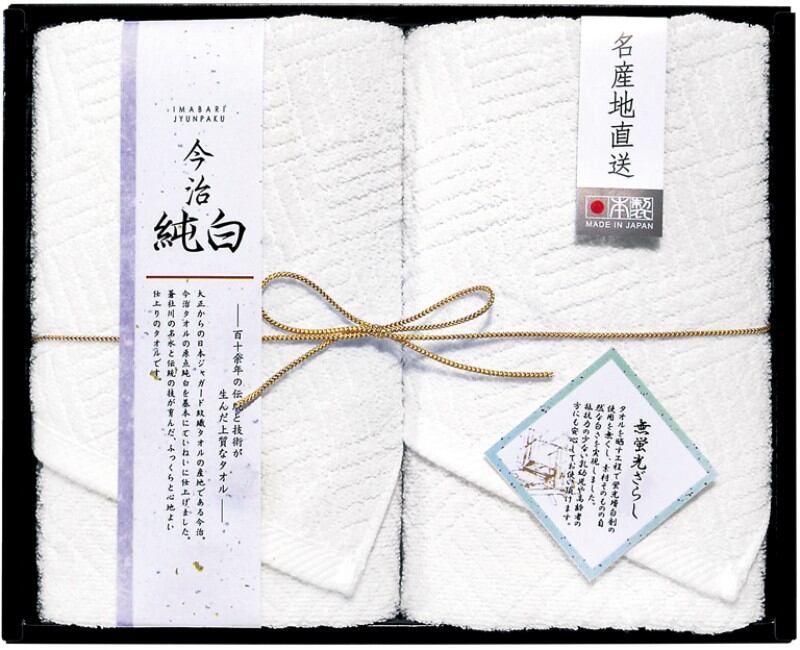 IMABARI
JYUNPAKU
今治
純白
百十余年の伝統と技術が
生んだ上質なタオル
大正からの日本ジャガード紋織タオルの産地である今治。
今治タオルの原点純白を基本にていねいに仕上げました。
蒼社川の名水と伝統の技が育んだ、ふっくらと心地よい
仕上りのタオルです。
名産地直送
日本製
MADE IN JAPAN
無蛍光ざらし
タオルを晒す工程で蛍光増白剤の
使用を無くし、素材そのものの自
然な白さを実現しました。
抵抗力の少ない乳幼児や高齢者の
方にも安心してお使い頂けます。